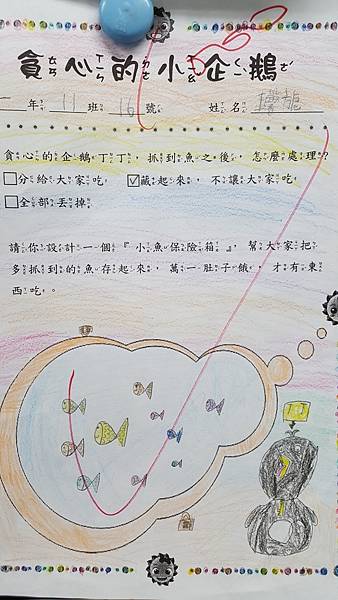 貪心的小企鵝
一年 11 班 16 號 姓名
貪心的企鵝丁丁，抓到魚之後，怎麼處理?
□分給大家吃，☑藏起來，不讓大家吃，
□全部丟掉。
請你設計一個『小魚保險箱』，幫大家把
多抓到的魚存起來，萬一肚子餓，才有東
西吃。